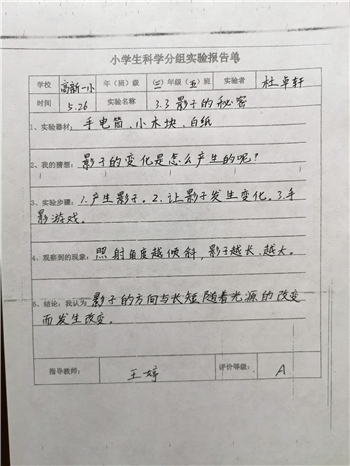 小学生科学分组实验报告单
学校 高新一小 年(班)级 (三)年级(五)班 实验者 杜卓轩
时间 5.26 实验名称 3.3影子的秘密
1、实验器材: 手电筒、小木块、白纸
2、我的猜想: 影子的变化是怎么产生的呢?
3、实验步骤: 1.产生影子。2.让影子发生变化。3.手
影游戏。
4、观察到的现象: 照射角度越倾斜,影子越长、越大。
5、结论:我认为 影子的方向与长短随着光源的改变
而发生改变。
指导教师: 王婷 评价等级: A